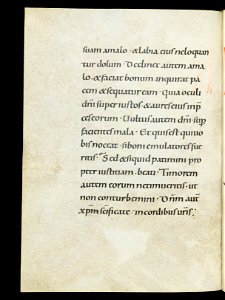 suam a malo · & labia eius ne loquan
tur dolum · Declinet autem a ma
lo · & faciat bonum inquirat pa
cem & sequatur eam · quia oculi
dñi super iustos & aures eius in p̄
ces eorum · Vultus autem dñi sup̄
facientes mala · Et quis est qui uo
bis noceat · si boni emulatores fue
ritis · Sed & si quid patimini pro
pter iustitiam · beati · Timorem
autem eorum ne timueritis · ut
non conturbemini · Dñm aut̄
xp̄m scificate · in cordibus uris ·